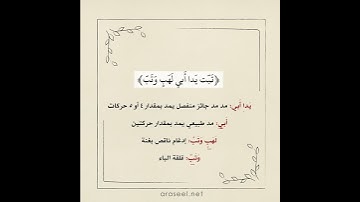 ﴿تَبَّت يَدا أَبي لَهَبٍ وَتَبَّ﴾
يدا أبي: مد مد جائز منفصل يمد بمقدار ٤ أو ٥ حركات
أبي: مد طبيعي يمد بمقدار حركتين
لهبٍ وتبّ: إدغام ناقص بغنة
وتبّ: قلقة الباء
araseel.net